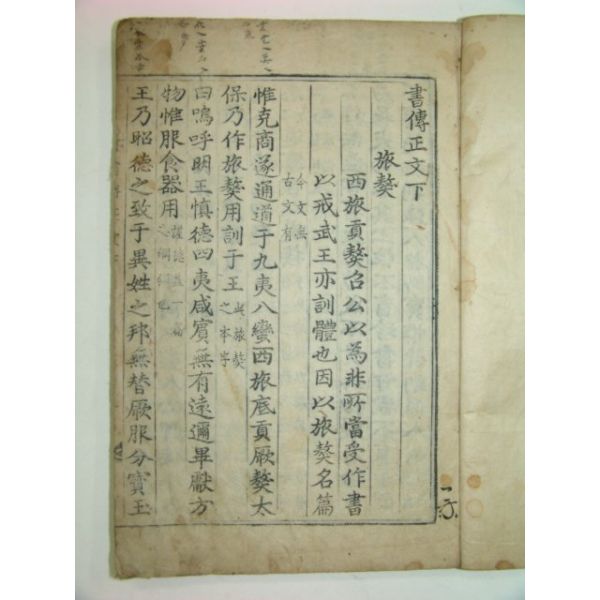 書傳正文下
旅獒
西旅貢獒召公以為非所當受作書
以戒武王亦訓體也因以旅獒名篇
今文無
古文有
惟克商遂通道于九夷八蠻西旅底貢厥獒太
保乃作旅獒用訓于王
此旅獒
之本序
曰嗚呼明王慎德四夷咸賓無有遠邇畢獻方
物惟服食器用
謹德蓋一篇
之綱領也
王乃昭德之致于異姓之邦無替厥服分寶玉